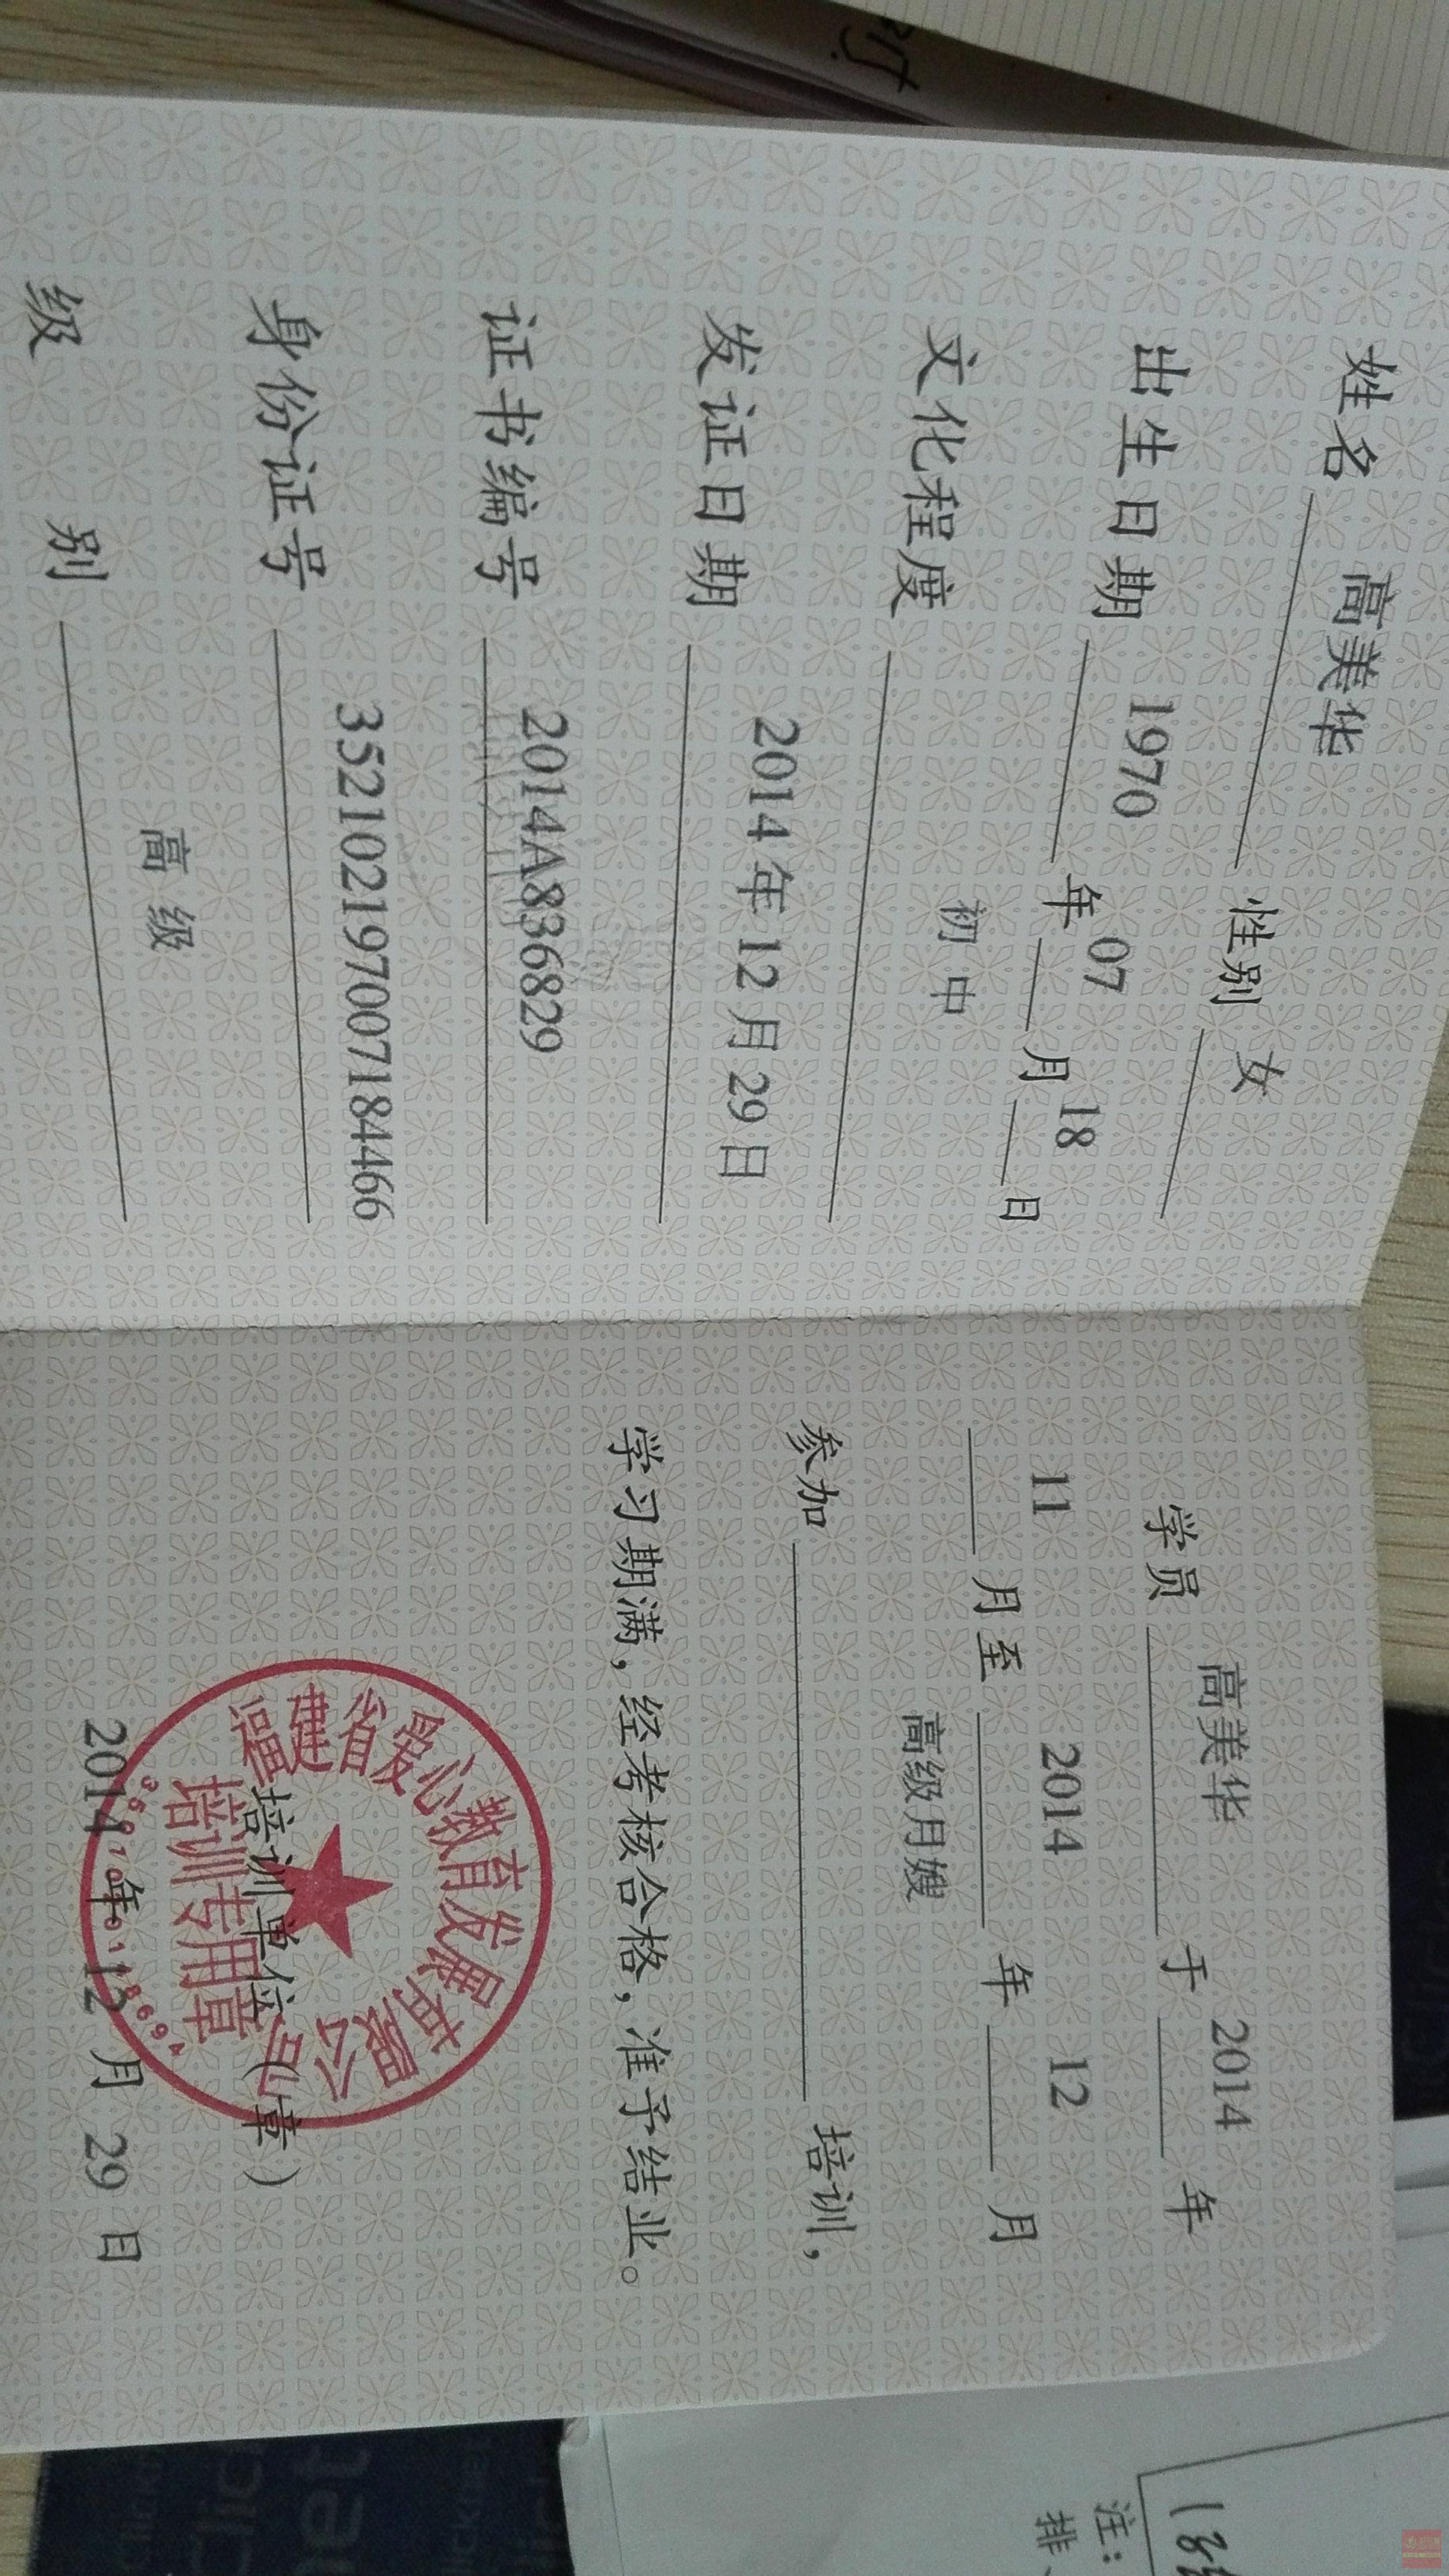 姓名 高美华 性别 女
出生日期 1970 年 07 月 18 日
文化程度 初中
发证日期 2014 年 12 月 29 日
证书编号 2014A836829
身份证号 352102197007184466
级别 高级
学员 高美华 于 2014 年
11 月至 2014 年 12 月
参加 高级月嫂 培训，
学习期满，经考核合格，准予结业。
培训单位（章）
2014 年 12 月 29 日
福建省爱心教育发展有限公司
培训专用章
注：
排